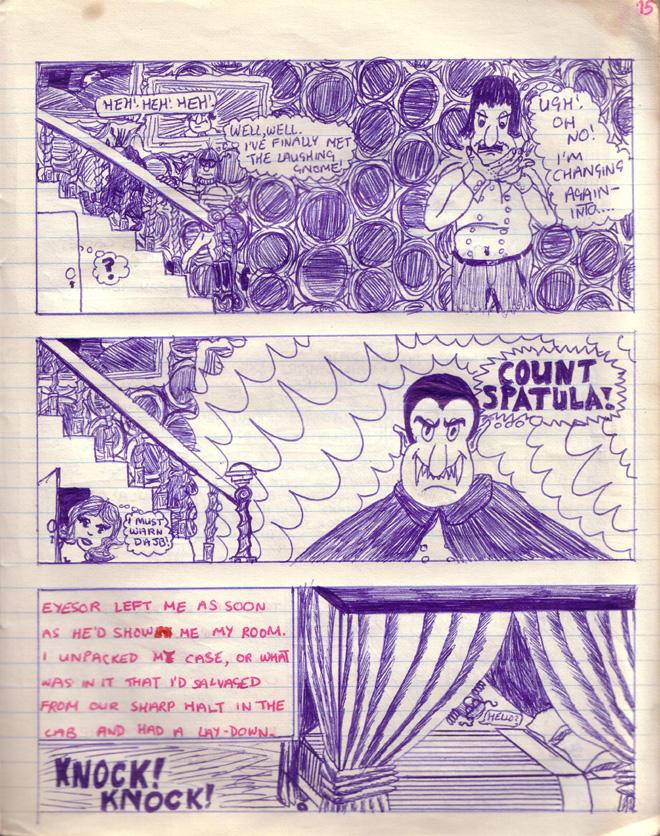 15
HEH! HEH! HEH!
WELL, WELL.
I'VE FINALLY MET
THE LAUGHING
GNOME!
UGH!
OH
NO!
I'M
CHANGING
AGAIN-
INTO....
?
COUNT
SPATULA!
I MUST
WARN
DAJB!
EYESOR LEFT ME AS SOON
AS HE'D SHOWN ME MY ROOM.
I UNPACKED MY CASE, OR WHAT
WAS IN IT THAT I'D SALVAGED
FROM OUR SHARP HALT IN THE
CAB AND HAD A LAY-DOWN.
HELLO?
KNOCK!
KNOCK!